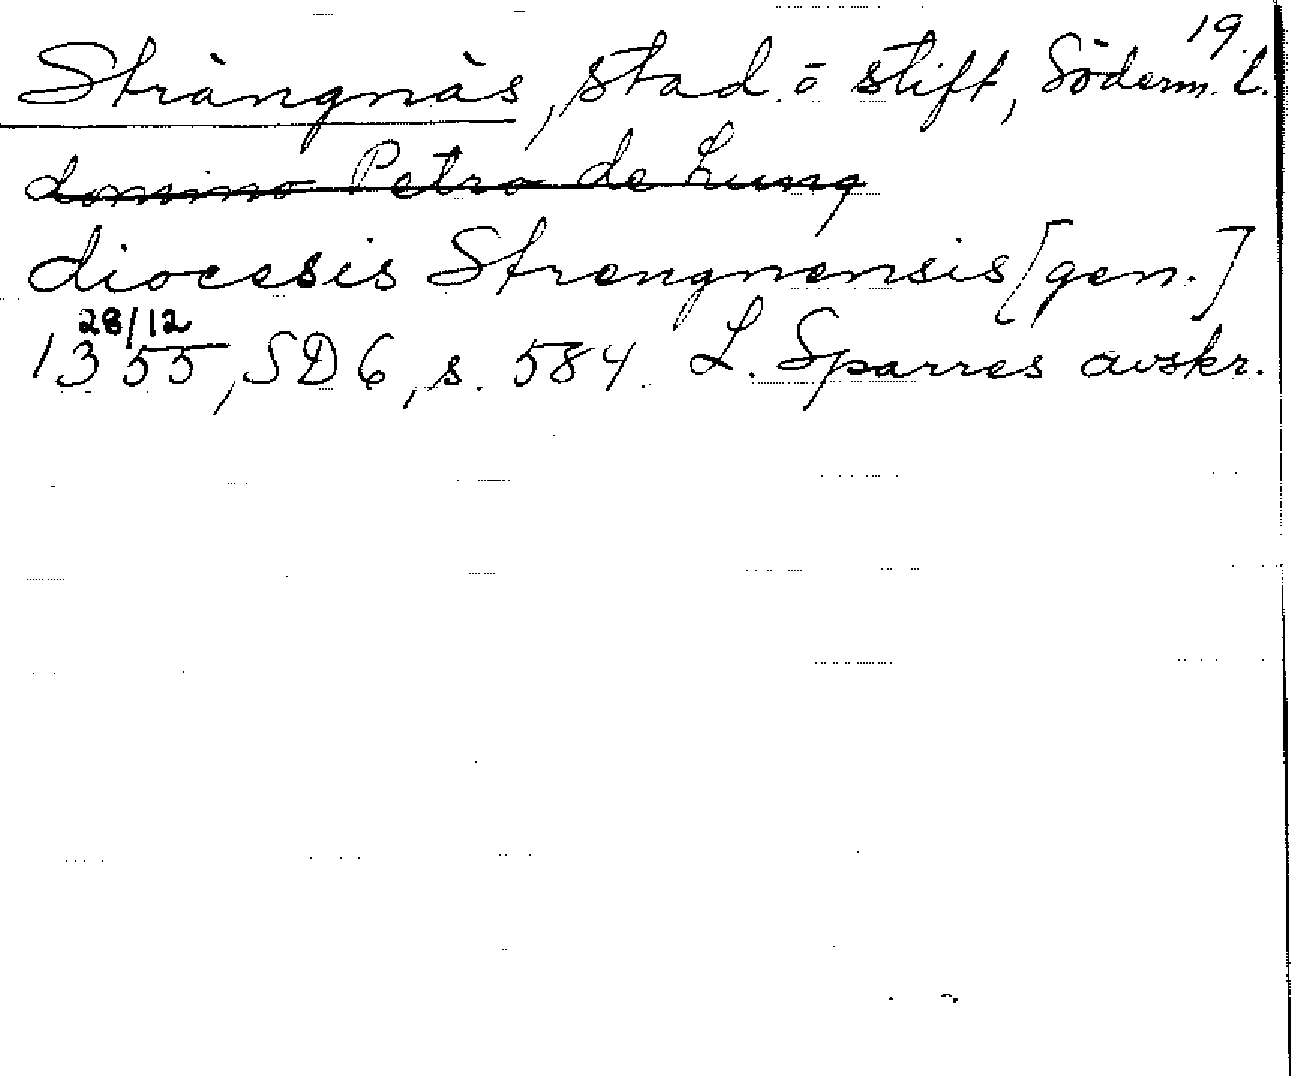 19.
Strängnäs, stad. o stift, Söderm. l.
domino Petro de Lung
diocesis Strengnensis [gen.]
28/12
1355, SD 6, s. 584. L. Sparres avskr.